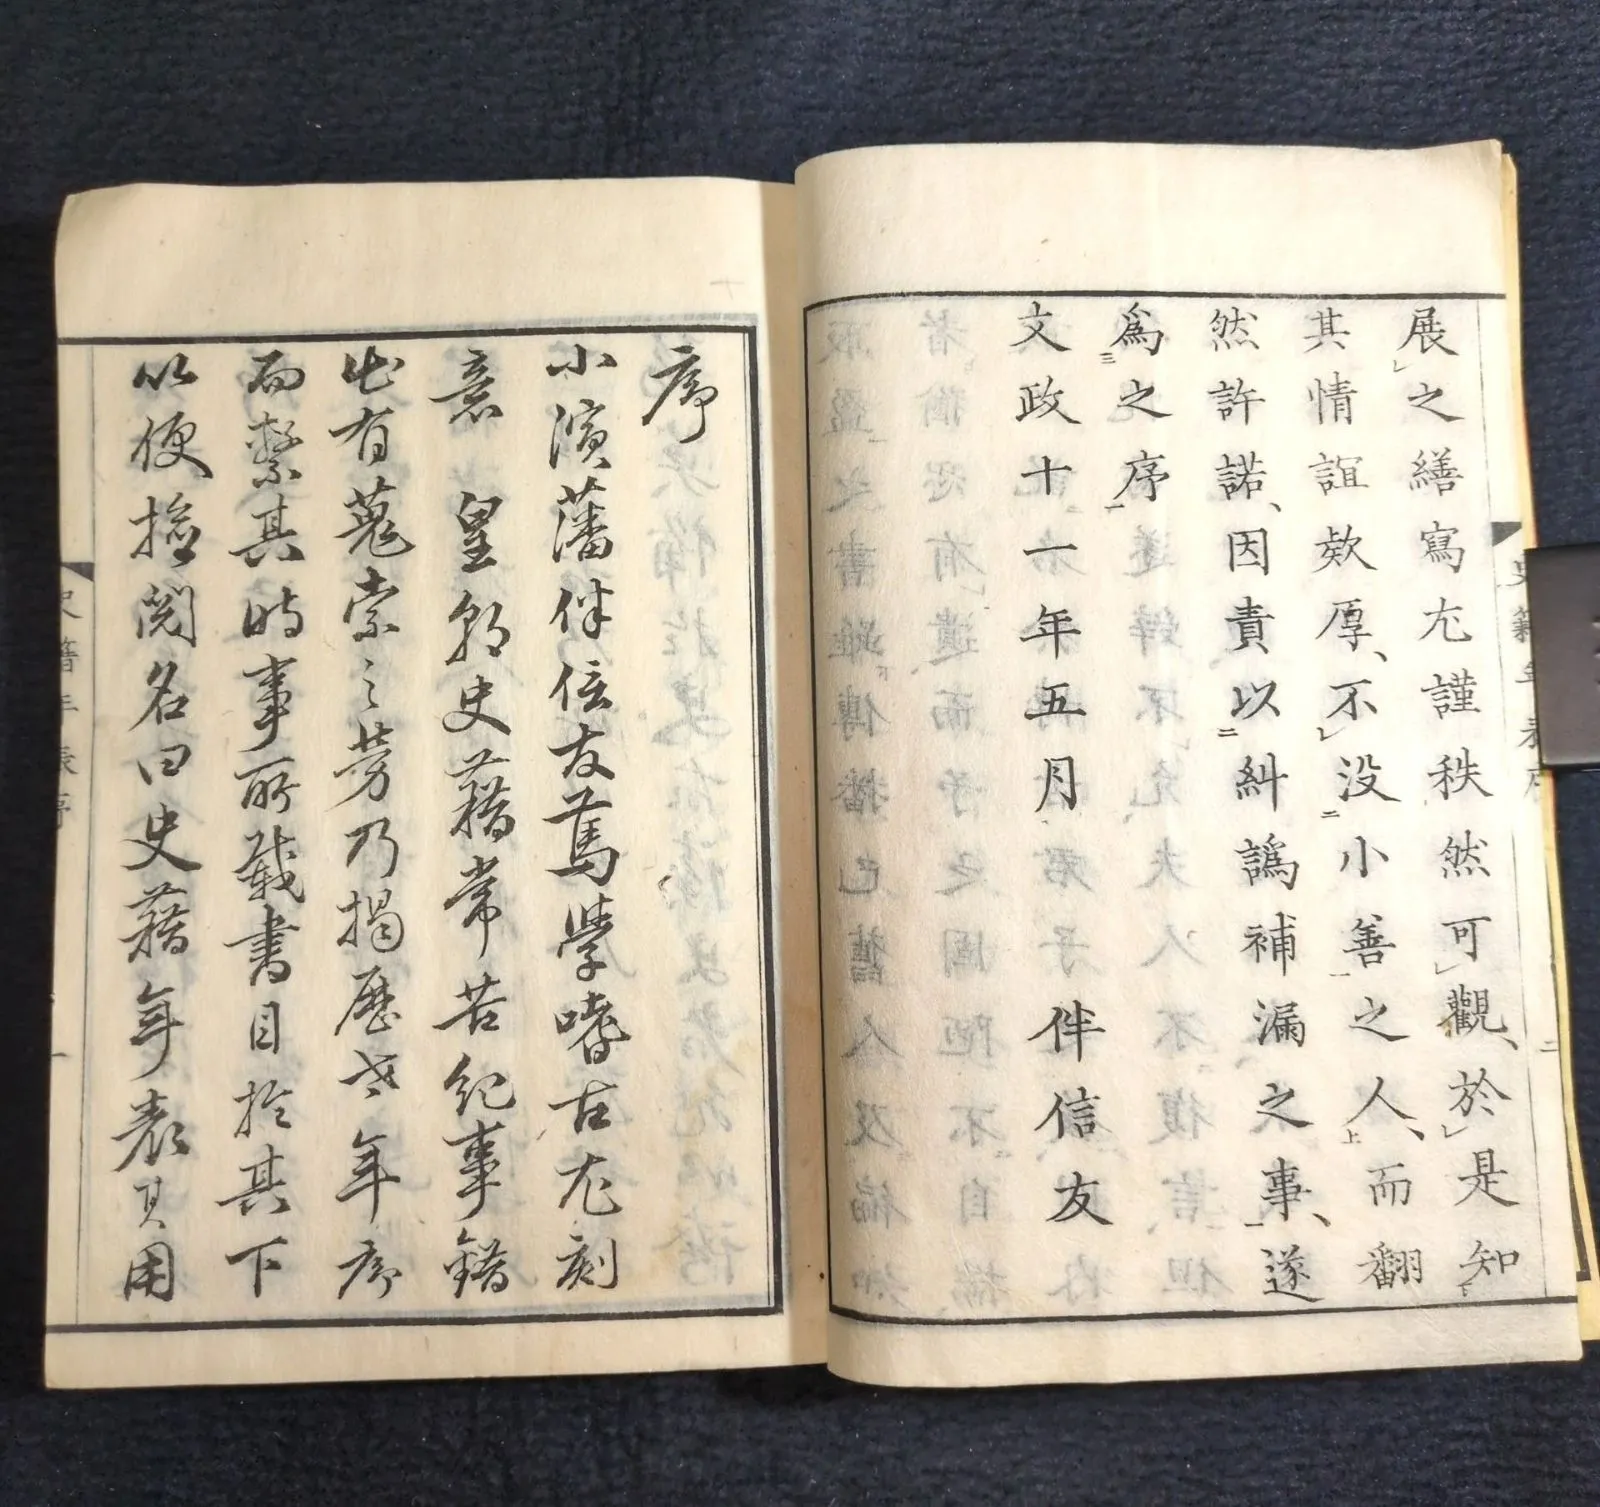 展之繕寫尤謹秩然可觀、於是知
其情誼欵厚、不没小善之人、而翻
然許諾、因責以糾譌補漏之事、遂
爲之序
文政十一年五月　伴信友
序
小濱藩伴信友篤學嗜古尤刻
意　皇朝史藉常苦紀事錯
出有蒐索之労乃揭歷世年序
而繫其時事所載書目於其下
以便撿閲名曰史藉年表其用
史籍年表序
二
史籍年表序
一